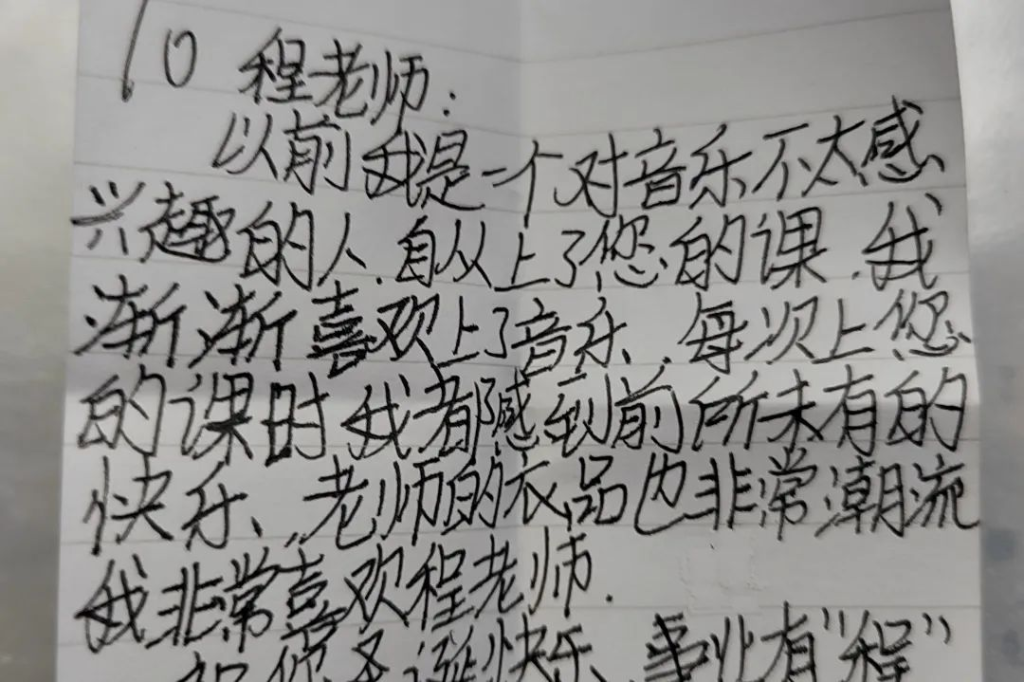 To 程老师:
以前我是一个对音乐不太感
兴趣的人.自从上了您的课.我
渐渐喜欢上了音乐、.每次上您
的课时我都感到前所未有的
快乐、.老师的衣品也非常潮流
我非常喜欢程老师.
祝你圣诞快乐、事业有“程”